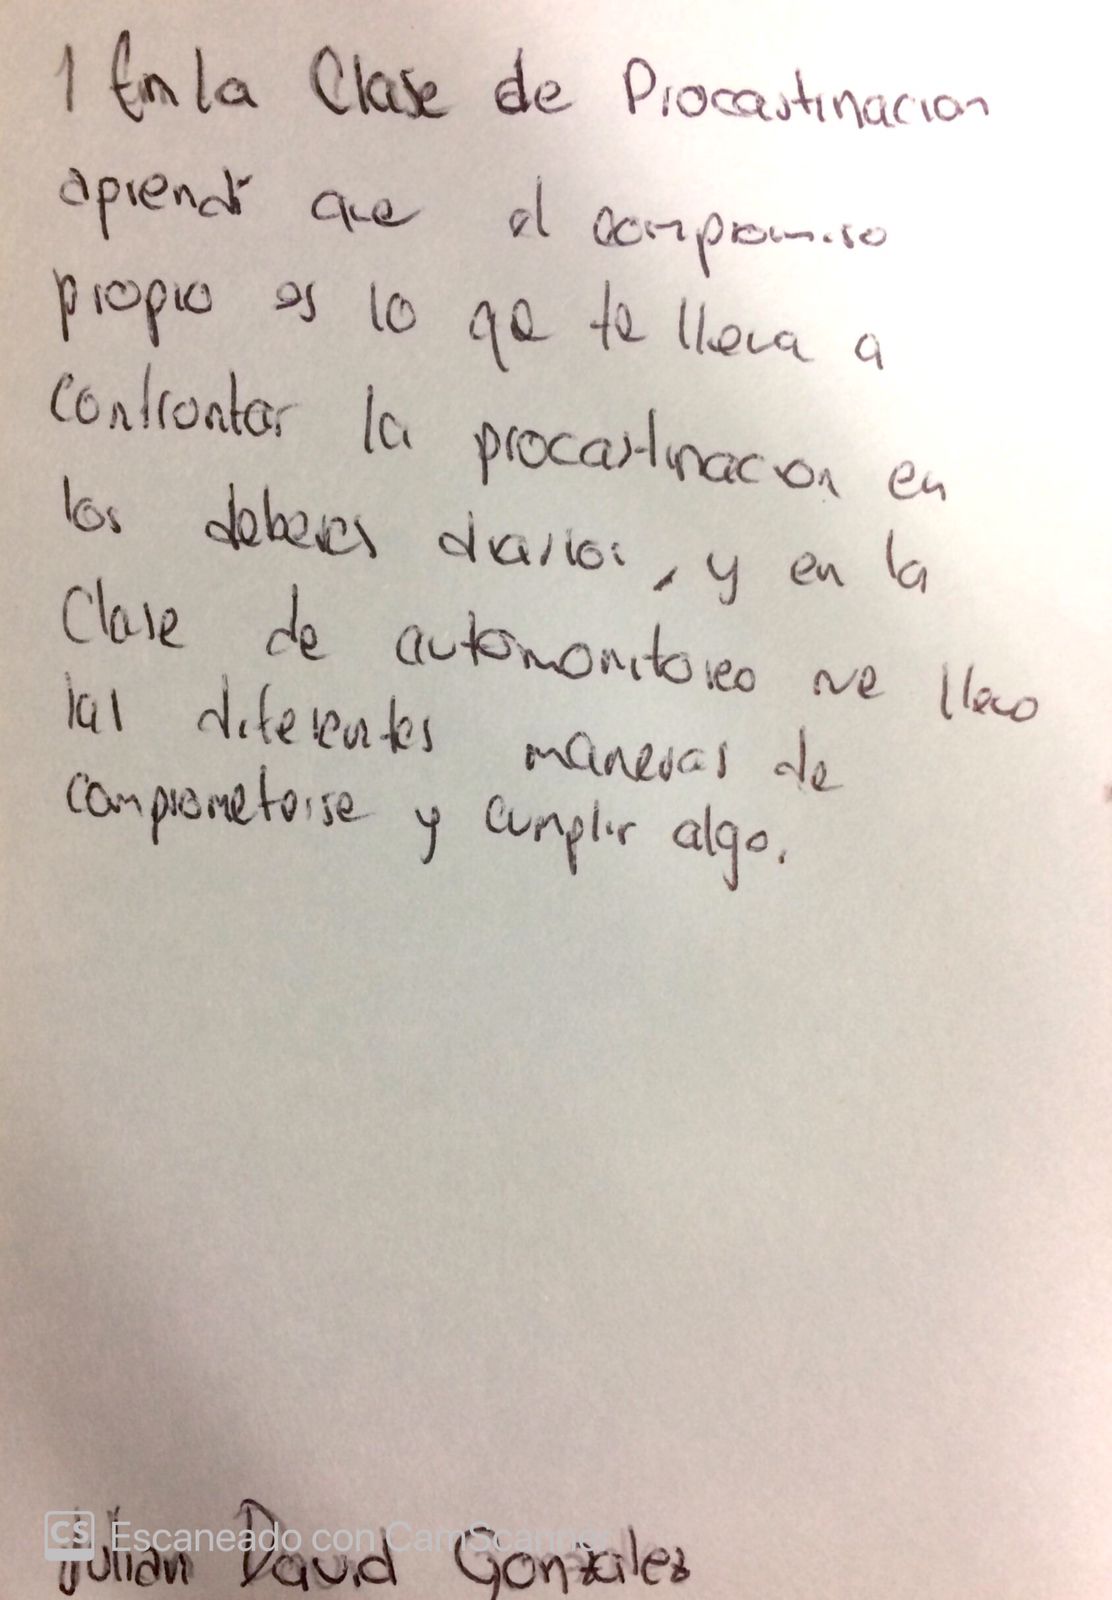 1 En la Clase de Procastinacion
aprendí que el compromiso
propio es lo qe te lleva a
confrontar la procastinacion en
los deberes diarios, y en la
Clase de automonitoreo me llevo
las diferentes maneras de
comprometerse y cumplir algo.
CS Escaneado con CamScanner
Julian David Gonzalez